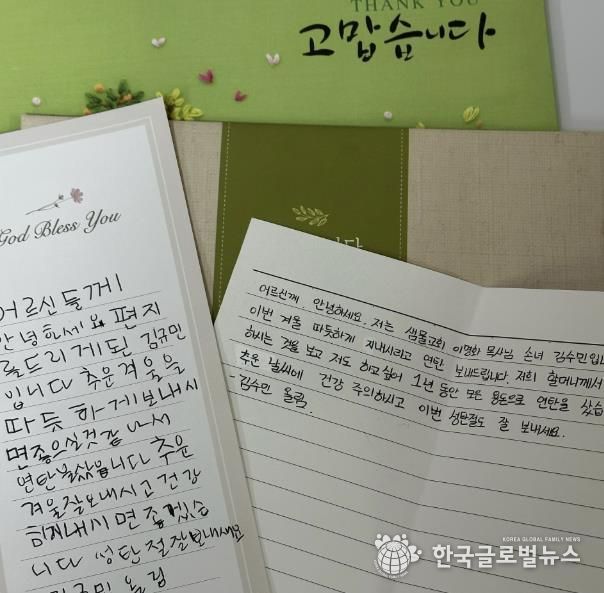 THANK YOU
고맙습니다
God Bless You
어르신들께
안녕하세요 편지
를드리게된 김규민
입니다 추운겨울을
따듯하게보내시
면좋으실것같아서
연탄불샀습니다 추운
겨울잘보내시고 건강
히지내시면 좋겠습
니다 성탄절잘보내세요
김규민 올림
어르신께 안녕하세요. 저는 샘물교회 이명화 목사님 손녀 김수민입니
이번 겨울 따듯하게 지내시라고 연탄 보내드립니다. 저희 할머니께서
하시는 것을 보고 저도 하고싶어 1년 동안 모은 용돈으로 연탄을 샀습
추운 날씨에 건강 주의하시고 이번 성탄절도 잘 보내세요.
-김수민 올림.
KOREA GLOBAL FAMILY NEWS
한국글로벌뉴스